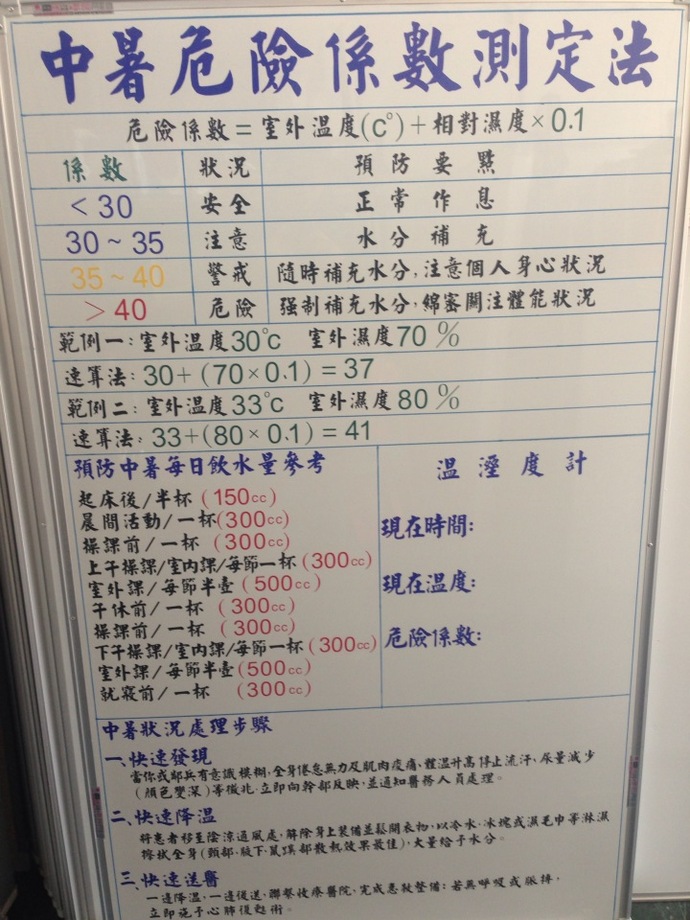 中暑危險係數測定法
危險係數=室外溫度(c°)+相對濕度×0.1
係數 狀況 預防要點
<30 安全 正常作息
30~35 注意 水分補充
35~40 警戒 隨時補充水分,注意個人身心狀況
>40 危險 強制補充水分,綿密關注體能狀況
範例一:室外溫度30°c 室外濕度70%
速算法:30+(70×0.1)=37
範例二:室外溫度33°c 室外濕度80%
速算法:33+(80×0.1)=41
預防中暑每日飲水量參考
起床後/半杯(150cc)
晨間活動/一杯(300cc)
操課前/一杯(300cc)
上午操課/室內課/每節一杯(300cc)
室外課/每節半壺(500cc)
午休前/一杯(300cc)
操課前/一杯(300cc)
下午操課/室內課/每節一杯(300cc)
室外課/每節半壺(500cc)
就寢前/一杯(300cc)
溫溼度計
現在時間:
現在溫度:
危險係數:
中暑狀況處理步驟
一、快速發現
當你或鄰兵有意識模糊,全身倦怠無力及肌肉痠痛、體溫升高停止流汗、尿量減少
(顏色變深)等徵兆,立即向幹部反映,並通知醫務人員處理。
二、快速降溫
將患者移至陰涼通風處,解除身上裝備並鬆開衣物,以冷水、冰塊或濕毛巾等淋濕
擦拭全身(頸部、腋下、鼠蹊部散熱效果最佳),大量給予水分。
三、快速送醫
一邊降溫,一邊後送,聯繫收療醫院,完成急救整備;若無呼吸或脈搏,
立即施予心肺復甦術。